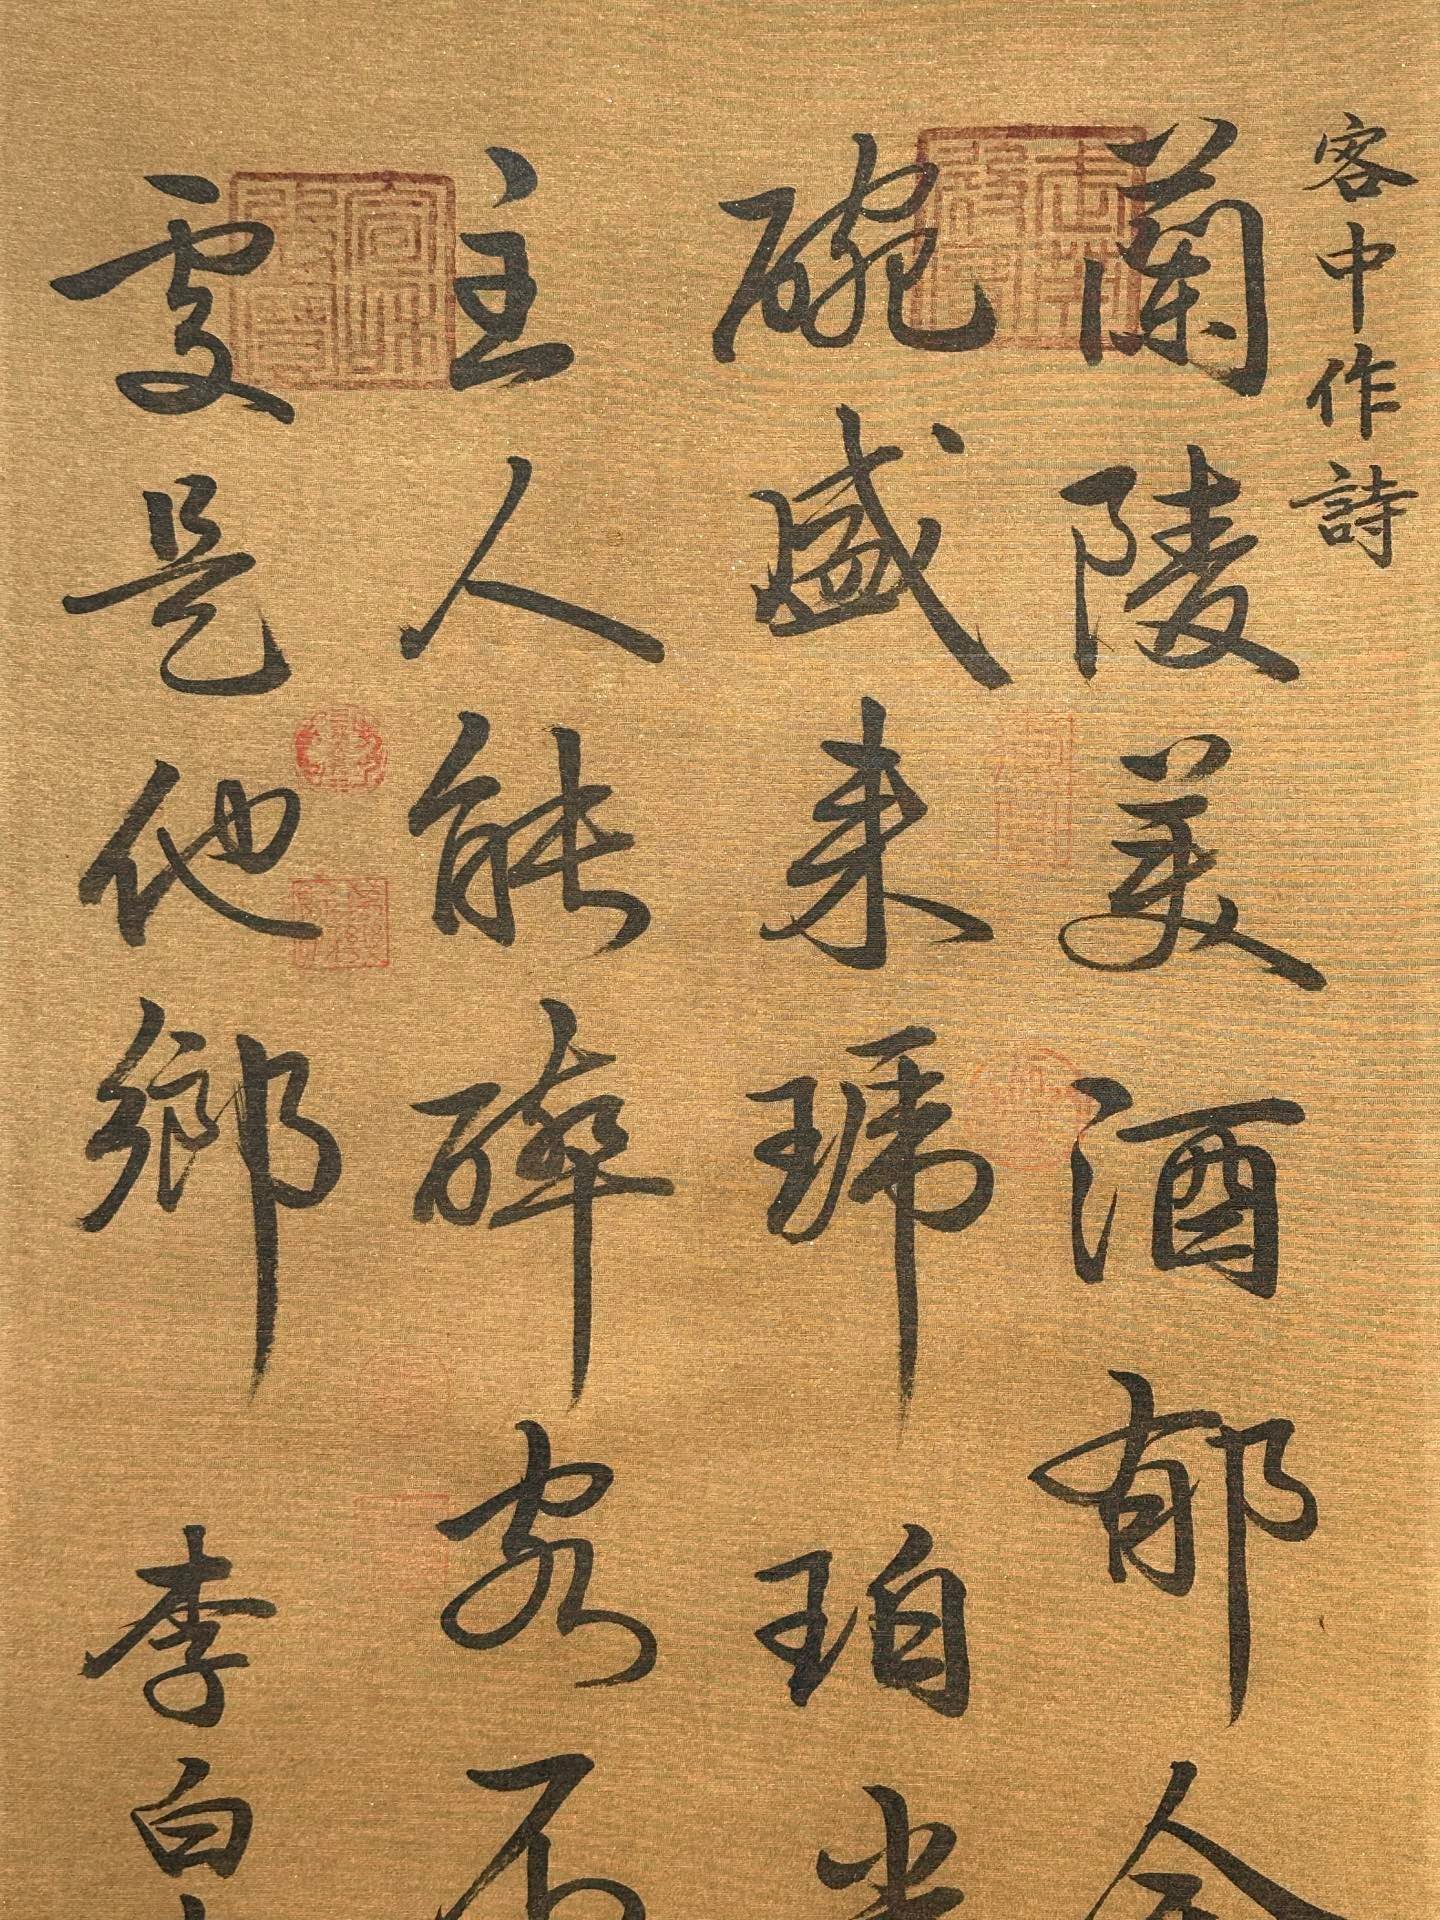 客中作詩
蘭陵美酒郁金
碗盛来琥珀光
主人能醉客不
處是他鄉 李白